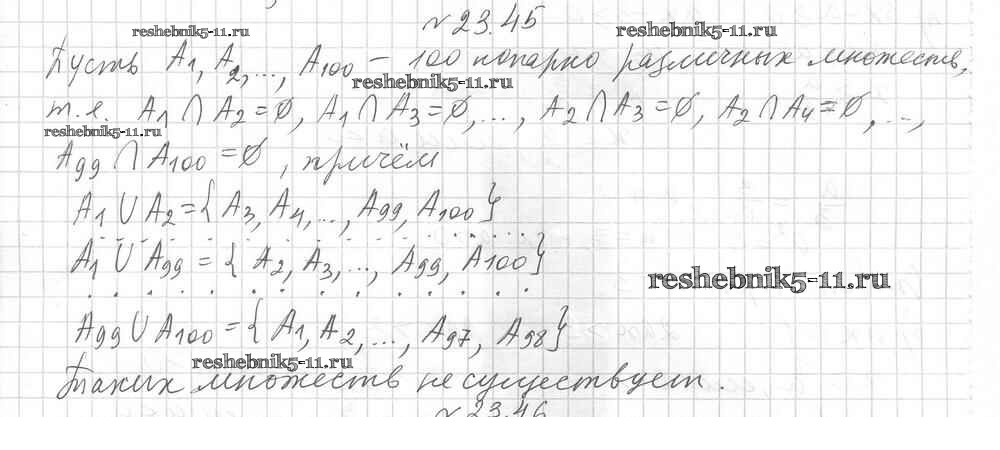 № 23.45
reshebnik5-11.ru reshebnik5-11.ru
Пусть A1, A2, ..., A100 – 100 попарно различных множеств,
reshebnik5-11.ru
т.е. A1 ∩ A2 = ∅, A1 ∩ A3 = ∅, ..., A2 ∩ A3 = ∅, A2 ∩ A4 = ∅, ...,
reshebnik5-11.ru
A99 ∩ A100 = ∅, причём
A1 ∪ A2 = { A3, A4, ..., A99, A100 }
. . . . . . . . . . . . . .
A1 ∪ A99 = { A2, A3, ..., A99, A100 }
reshebnik5-11.ru
. . . . . . . . . . . . . .
A99 ∪ A100 = { A1, A2, ..., A97, A98 }
reshebnik5-11.ru
Таких множеств не существует.
№ 23.46